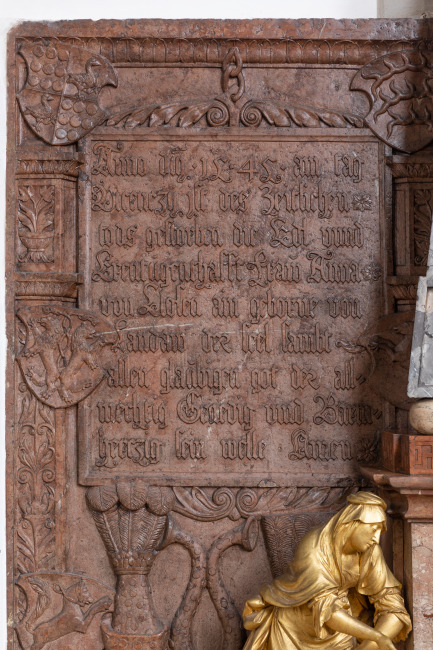 Anno dñi 1545 am tag
Vicenzÿ ist des Zeitlichen
tods gestorben die Edl vnnd
Frau Anna
von Closen am geborne von
Landaw der seel sambt
allen glaubigen got der all
mechtig Genedig vnd Barm
herczig sein welle Amen